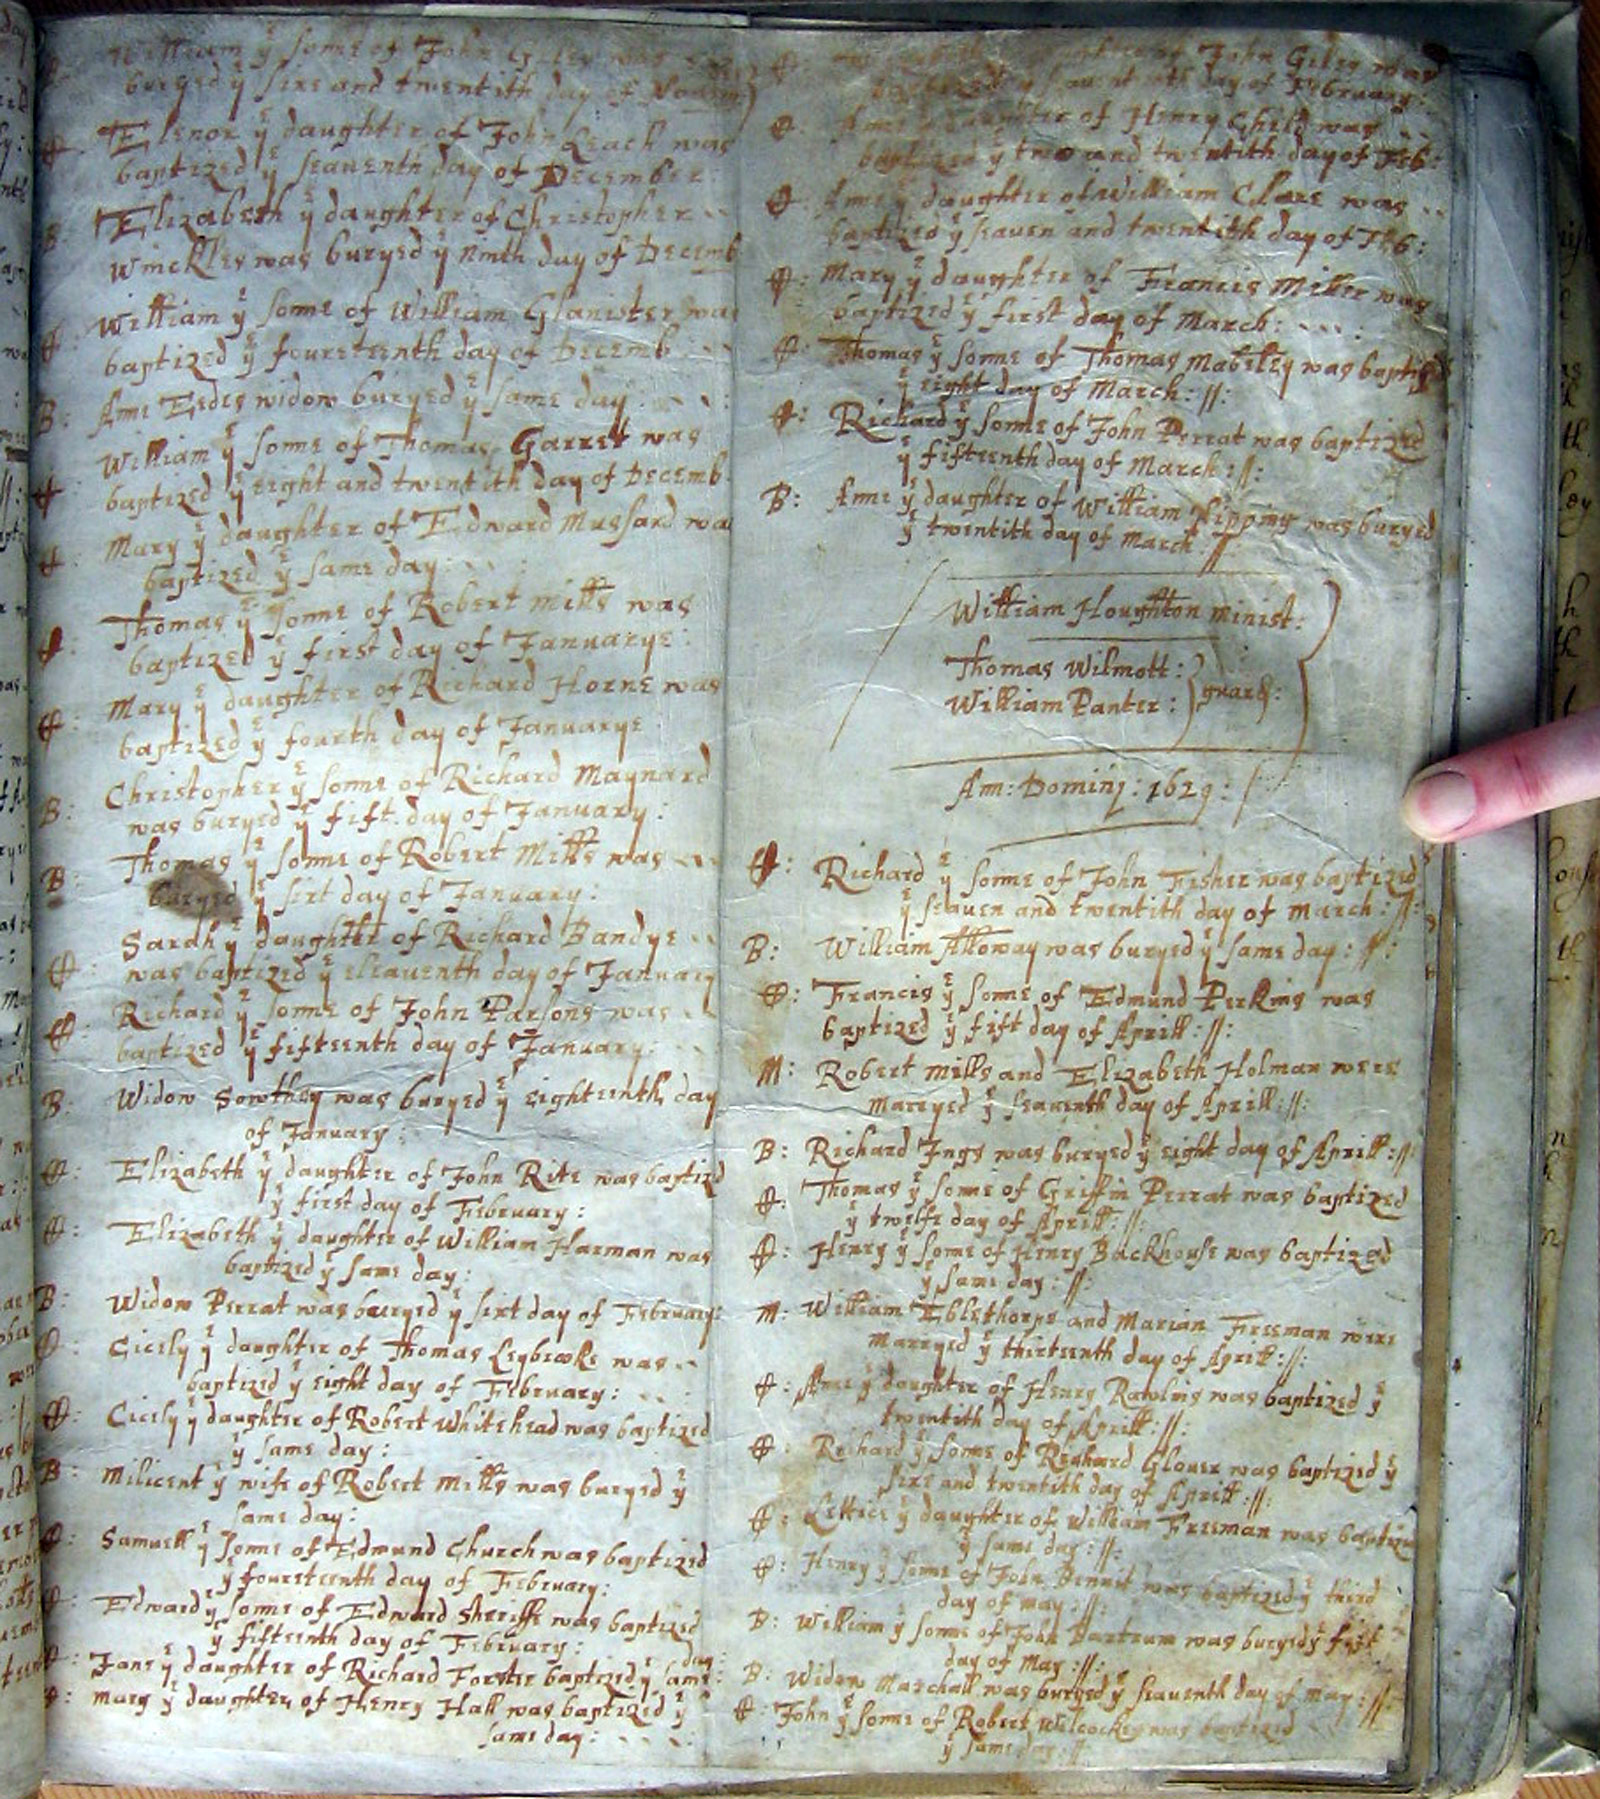 William yͤ sonne of John Giles was
buryed yͤ sixe and twentith day of Novem:
Elenor yͤ daughter of John Leach was
baptized yͤ seauenth day of December:
B: Elizabeth yͤ daughter of Christopher
Winckles was buryed yͤ ninth day of Decemb
William yͤ sonne of William Glanister was
baptized yͤ fourteenth day of Decemb
B: Anne Eedes widow buryed yͤ same day:
William yͤ sonne of Thomas Garret was
baptized yͤ eight and twentith day of Decemb:
Mary yͤ daughter of Edward Mussard was
baptized yͤ same day:
Thomas yͤ sonne of Robert Mills was
baptized yͤ first day of Januarye:
Mary yͤ daughter of Richard Horne was
baptized yͤ fourth day of Januarye
Christopher yͤ sonne of Richard Maynard
B: was buryed yͤ fift day of January:
Thomas yͤ sonne of Robert Mills was
B: buryed yͤ sixt day of January:
Sarah yͤ daughter of Richard Bandye
was baptized yͤ eleauenth day of January
Richard yͤ sonne of John Parsons was
baptized yͤ fifteenth day of January:
B: Widow Sowthey was buryed yͤ eighteenth day
of January:
Elizabeth yͤ daughter of John Rite was baptized
yͤ first day of February:
Elizabeth yͤ daughter of William Harman was
baptized yͤ same day:
B: Widow Perrat was buryed yͤ sixt day of February:
Cicely yͤ daughter of Thomas Leybrooke was
baptized yͤ eight day of February:
Cicely yͤ daughter of Robert Whitehead was baptized
yͤ same day:
B: Milicent yͤ wife of Robert Mills was buryed yͤ
same day:
Samuell yͤ sonne of Edmund Church was baptized
yͤ fourteenth day of February:
Edward yͤ sonne of Edward Sheriffe was baptized
yͤ fifteenth day of February:
Jane yͤ daughter of Richard Forster baptized yͤ same day:
Mary yͤ daughter of Henry Hall was baptized yͤ
same day:
daughter of John Giles was
baptized yͤ seauenteenth day of February:
Anne yͤ daughter of Henry Child was
baptized yͤ two and twentith day of Feb:
Anne yͤ daughter of William Clare was
baptized yͤ seauen and twentith day of Feb:
Mary yͤ daughter of Francis Miller was
baptized yͤ first day of March:
Thomas yͤ sonne of Thomas Maberley was baptized
yͤ eight day of March://:
Richard yͤ sonne of John Perrat was baptized
yͤ fifteenth day of March://:
B: Anne yͤ daughter of William Pipping was buryed
yͤ twentith day of March://:
William Houghton minist:
Thomas Wilmott:
William Panter: guard:
Ann: Dominj: 1629:
Richard yͤ sonne of John Fisher was baptized
yͤ seauen and twentith day of March://:
B: William Alloway was buryed yͤ same day://:
Francis yͤ sonne of Edmund Perkins was
baptized yͤ fift day of Aprill://:
M: Robert Mills and Elizabeth Holman were
marryed yͤ seauenth day of Aprill://:
B: Richard Ings was buryed yͤ eight day of Aprill://:
Thomas yͤ sonne of Griffin Perrat was baptized
yͤ twelfe day of Aprill://:
Henry yͤ sonne of Henry Backhouse was baptized
yͤ same day://:
M: William Eblethorpe and Marian Freeman were
marryed yͤ thirteenth day of Aprill://:
Anne yͤ daughter of Henry Rawlins was baptized yͤ
twentith day of Aprill://:
Richard yͤ sonne of Reynard Glouer was baptized yͤ
sixe and twentith day of Aprill://:
Lettice yͤ daughter of William Freeman was baptized
yͤ same day://:
Henry yͤ sonne of John Bennit was baptized yͤ third
day of may://:
B: William yͤ sonne of John Bartrum was buryed yͤ fift
day of May://:
B: Widow Marchall was buryed yͤ seauenth day of may://:
John yͤ sonne of Robert Wilcockes was baptized
yͤ same day://